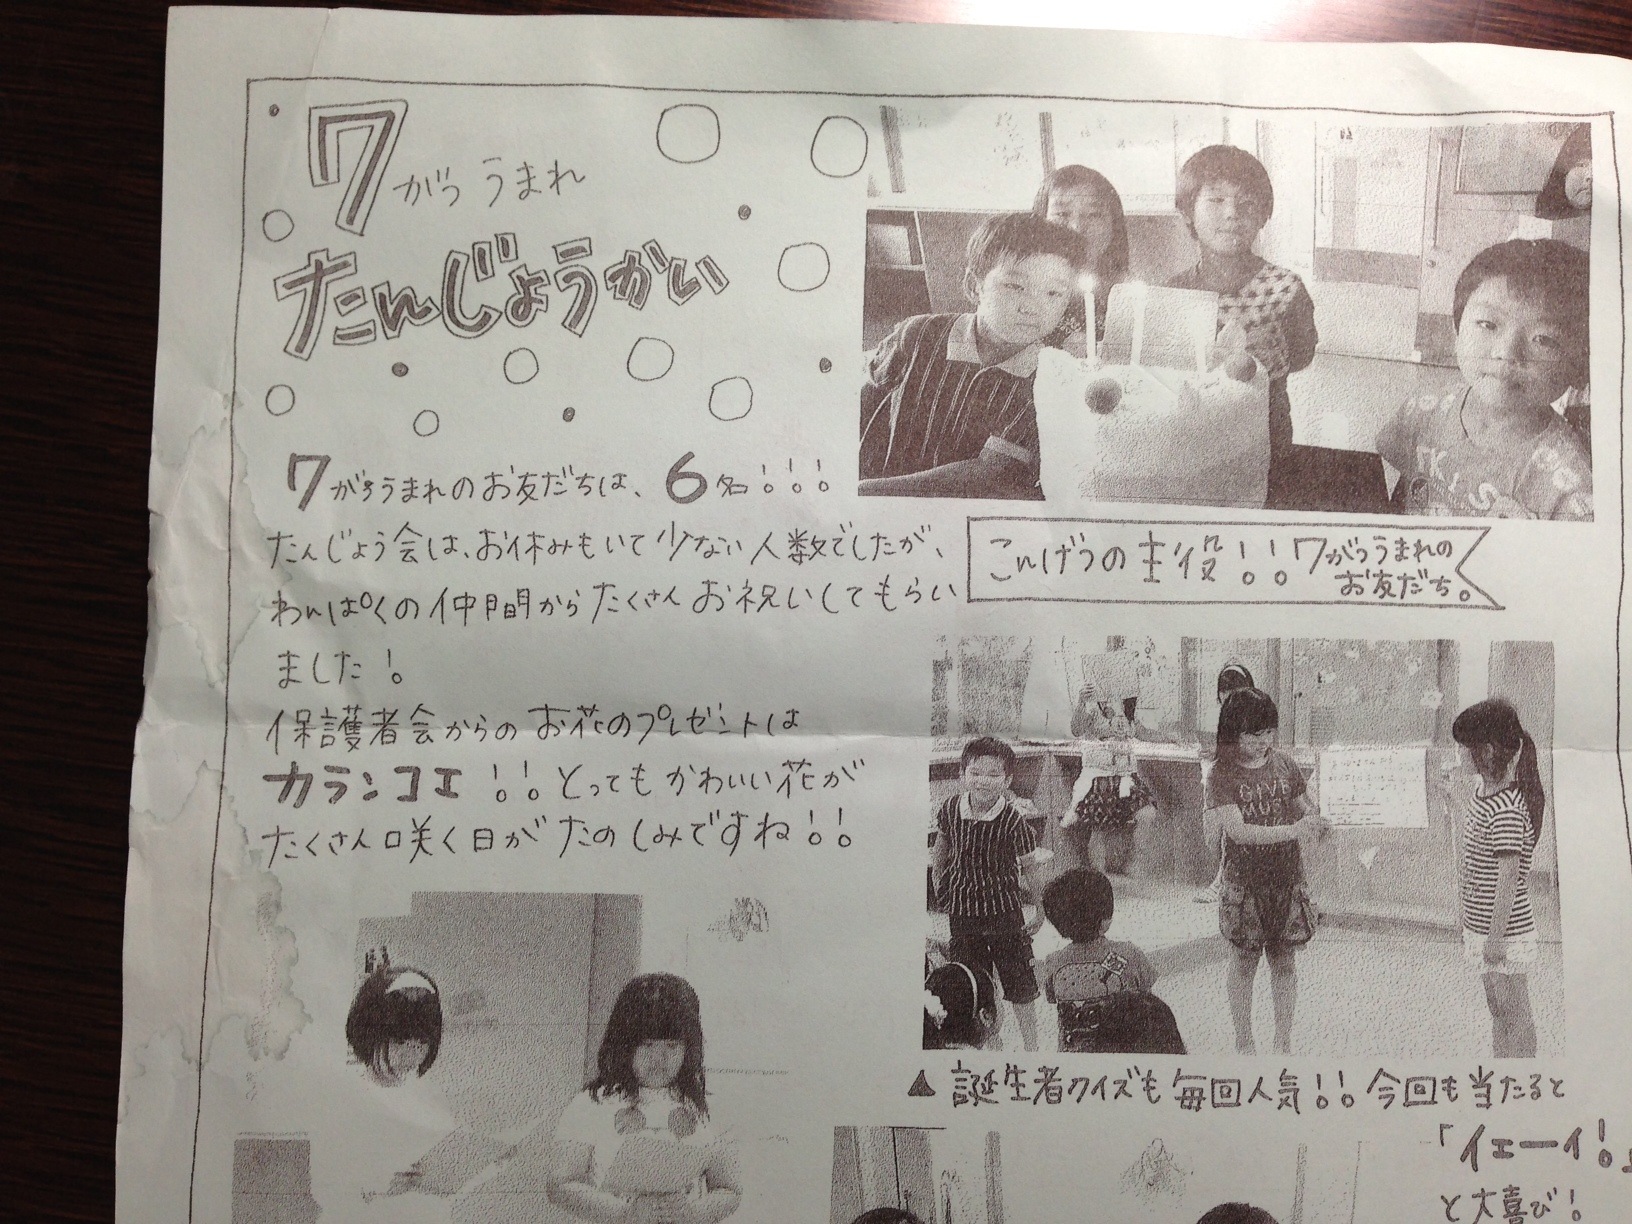 7がつうまれ
たんじょうかい
7がつうまれのお友だちは、6名!!!
たんじょう会は、お休みもいて少ない人数でしたが、
わんぱくの仲間からたくさんお祝いしてもらい
ました!
保護者会からのお花のプレゼントは
カランコエ!!とってもかわいい花が
たくさん咲く日がたのしみですね!!
こんげつの主役!!7がつうまれの
お友だち。
GIVE
MUS
▲誕生者クイズも毎回人気!!今回も当たると
「イエーイ!」
と大喜び!